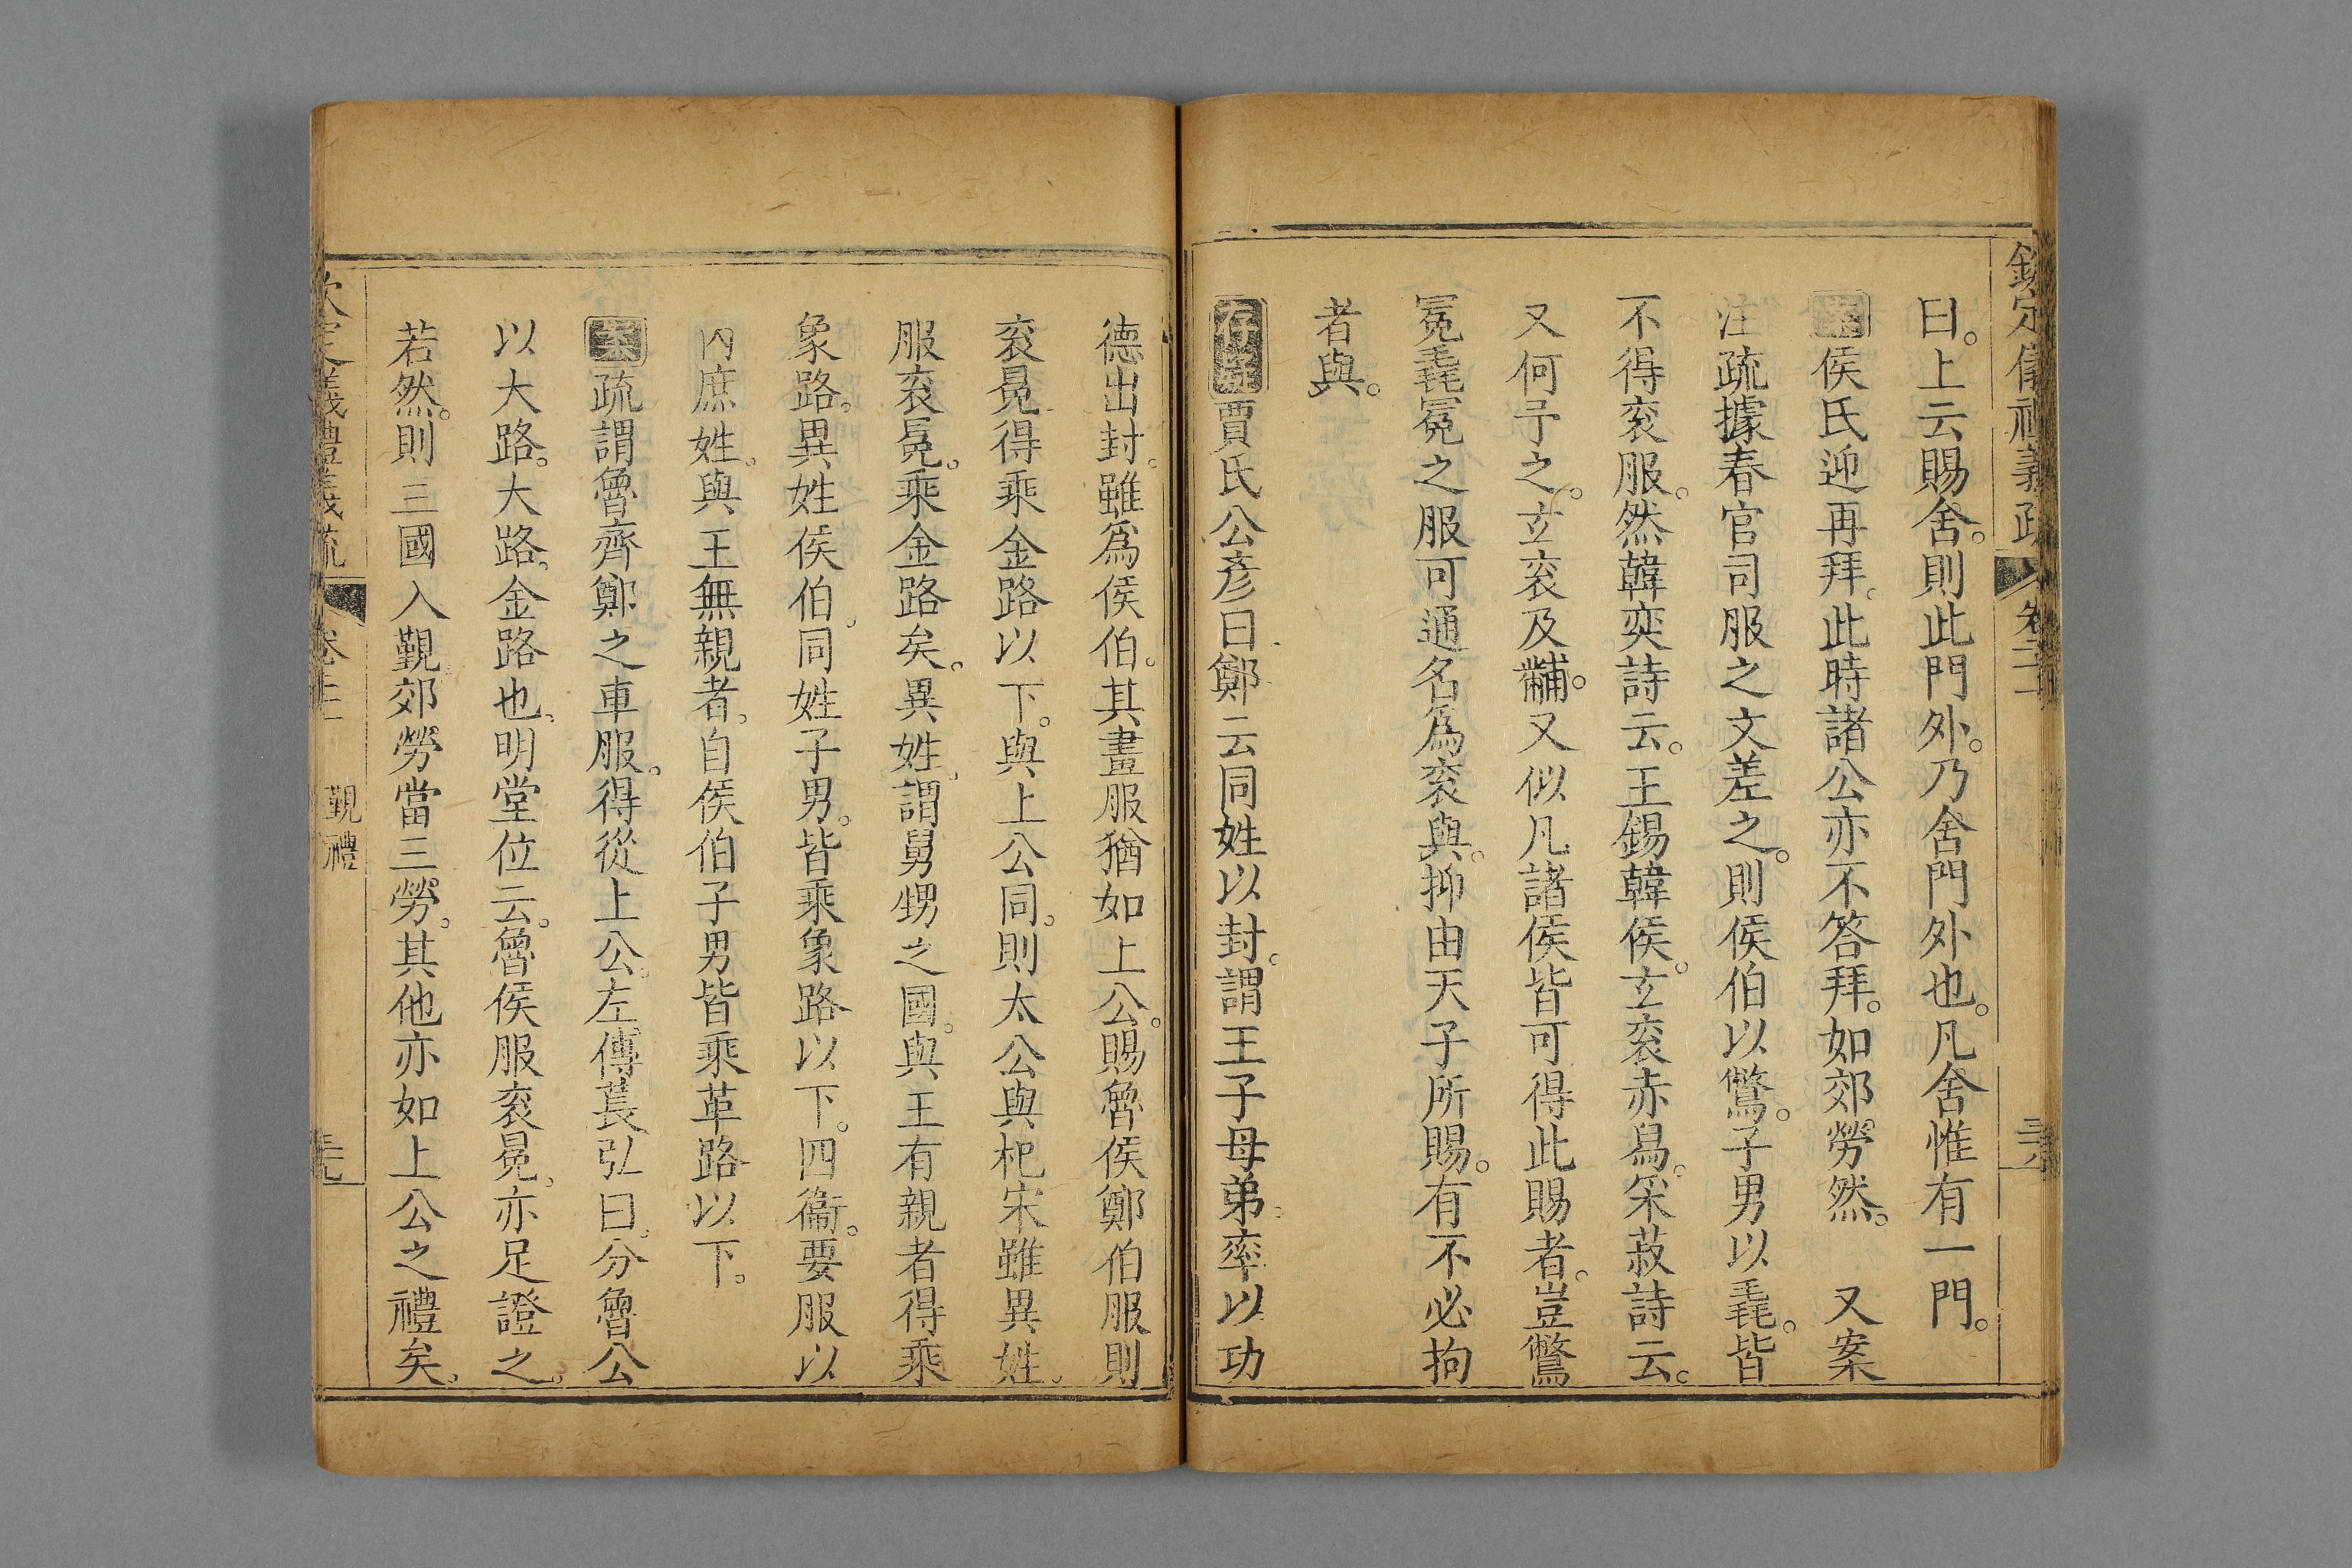 欽定儀禮義疏 卷二十
曰。上云賜舍。則此門外。乃舍門外也。凡舍惟有一門。
案侯氏迎再拜。此時諸公亦不答拜。如郊勞然。 又案
注疏據春官司服之文差之。則侯伯以鷩。子男以毳。皆
不得衮服。然韓奕詩云。王錫韓侯。玄衮赤舄。采菽詩云。
又何予之。玄衮及黼。又似凡諸侯皆可得此賜者。豈鷩
冕毳冕之服可通名為衮與。抑由天子所賜。有不必拘
者與。
存疑賈氏公彥曰鄭云同姓以封。謂王子母弟。率以功
德出封。雖爲侯伯。其畫服猶如上公。賜魯侯鄭伯服則
衮冕得乘金路以下。與上公同。則太公與杞宋雖異姓。
服衮冕。乘金路矣。異姓。謂舅甥之國。與王有親者得乘
象路。異姓侯伯。同姓子男。皆乘象路以下。四衞。要服以
內庶姓。與王無親者。自侯伯子男皆乘革路以下。
案疏謂魯齊鄭之車服。得從上公。左傳萇弘曰。分魯公
以大路。大路。金路也。明堂位云。魯侯服衮冕。亦足證之。
若然。則三國入覲郊勞當三勞。其他亦如上公之禮矣。
欽定儀禮義疏 卷二十 覲禮